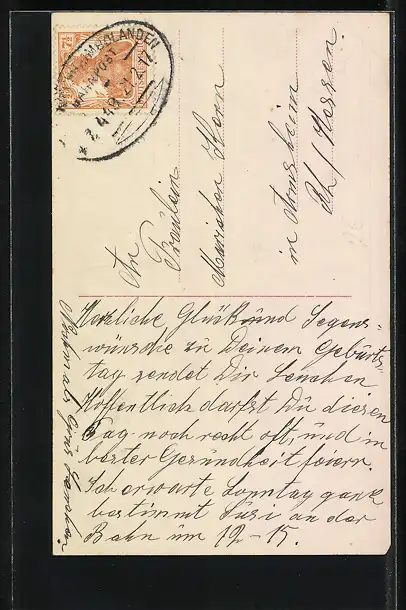 An
Fräulein
Mariechen Horn
in Armsheim
Rh/Hessen.
Herzliche Glück und Segens-
wünsche zu Deinem Geburts-
tag sendet Dir Lenchen
Hoffentlich darfst Du diesen
Tag noch recht oft, und in
bester Gesundheit feiern.
Ich erwarte Sonntag ganz
bestimmt Susi an der
Bahn um 12-15.
Nochmals Gruß Lenchen.
BAHNPOST
7½